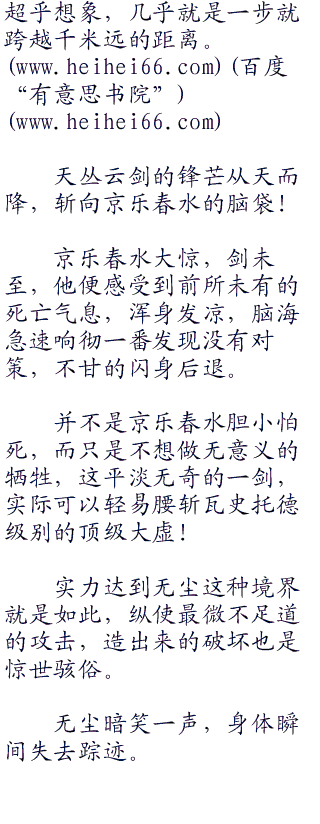 超乎想象，几乎就是一步就
跨越千米远的距离。
(www.heihei66.com)(百度
“有意思书院”)
(www.heihei66.com)
天丛云剑的锋芒从天而
降，斩向京乐春水的脑袋！
京乐春水大惊，剑未
至，他便感受到前所未有的
死亡气息，浑身发凉，脑海
急速响彻一番发现没有对
策，不甘的闪身后退。
并不是京乐春水胆小怕
死，而只是不想做无意义的
牺牲，这平淡无奇的一剑，
实际可以轻易腰斩瓦史托德
级别的顶级大虚！
实力达到无尘这种境界
就是如此，纵使最微不足道
的攻击，造出来的破坏也是
惊世骇俗。
无尘暗笑一声，身体瞬
间失去踪迹。